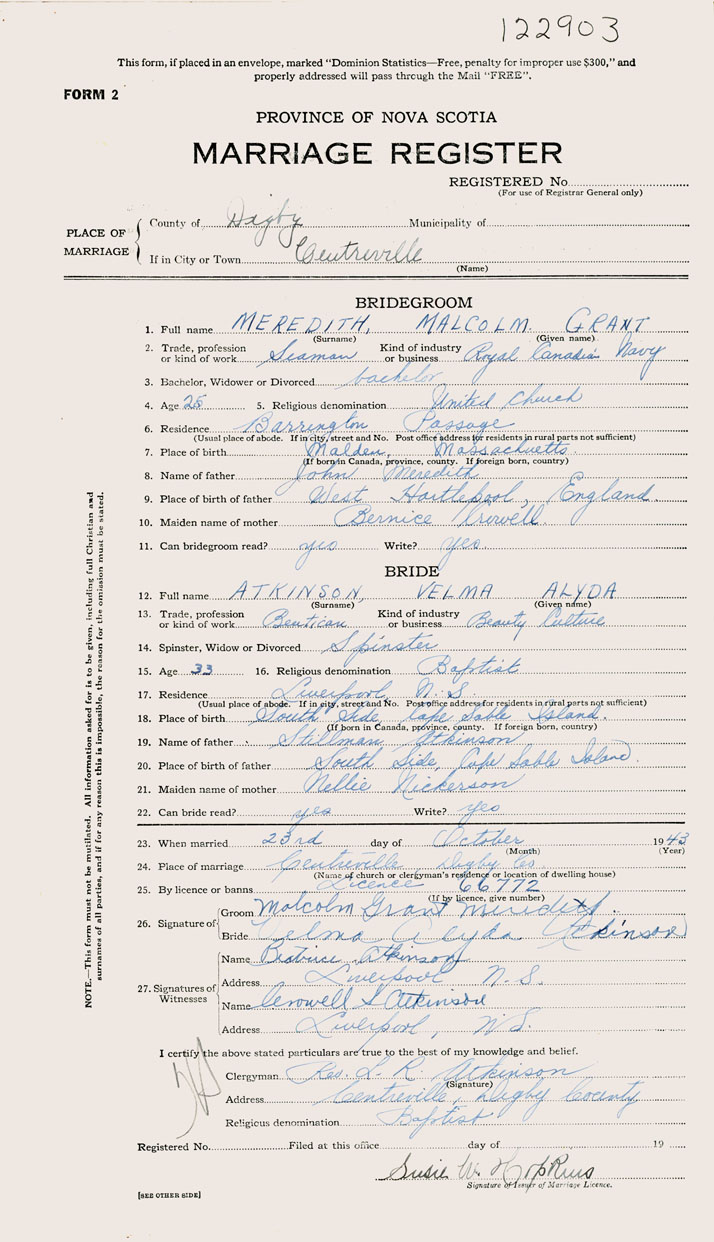 122903
This form, if placed in an envelope, marked "Dominion Statistics—Free, penalty for improper use $300," and
properly addressed will pass through the Mail "FREE".
FORM 2
PROVINCE OF NOVA SCOTIA
MARRIAGE REGISTER
REGISTERED No.
(For use of Registrar General only)
PLACE OF MARRIAGE
County of Digby Municipality of
If in City or Town Centreville
(Name)
BRIDEGROOM
1. Full name MEREDITH, MALCOLM GRANT
(Surname) (Given name)
2. Trade, profession or kind of work Seaman Kind of industry or business Royal Canadian Navy
3. Bachelor, Widower or Divorced bachelor
4. Age 25 5. Religious denomination United Church
6. Residence Barrington Passage
(Usual place of abode. If in city, street and No. Post office address for residents in rural parts not sufficient)
7. Place of birth Malden, Massachusetts
(If born in Canada, province, county. If foreign born, country)
8. Name of father John Meredith
9. Place of birth of father West Hartlepool, England
10. Maiden name of mother Bernice Crowell
11. Can bridegroom read? yes Write? yes
BRIDE
12. Full name ATKINSON, VELMA ALYDA
(Surname) (Given name)
13. Trade, profession or kind of work Beutican Kind of industry or business Beauty Culture
14. Spinster, Widow or Divorced Spinster
15. Age 33 16. Religious denomination Baptist
17. Residence Liverpool, N.S.
(Usual place of abode. If in city, street and No. Post office address for residents in rural parts not sufficient)
18. Place of birth South Side, Cape Sable Island.
(If born in Canada, province, county. If foreign born, country)
19. Name of father Stillman Atkinson
20. Place of birth of father South Side, Cape Sable Island.
21. Maiden name of mother Nellie Nickerson
22. Can bride read? yes Write? yes
23. When married 23rd day of October 1943
(Month) (Year)
24. Place of marriage Centreville Digby Co.
(Name of church or clergyman's residence or location of dwelling house)
25. By licence or banns Licence 66772
(If by licence, give number)
26. Signature of
Groom Malcolm Grant Meredith.
Bride Velma Alyda Atkinson
27. Signatures of Witnesses
Name Beatrice Atkinson
Address Liverpool N.S.
Name Crowell S Atkinson
Address Liverpool, N.S.
I certify the above stated particulars are true to the best of my knowledge and belief.
Clergyman Rev. L. R. Atkinson
(Signature)
Address Centreville, Digby County
Religious denomination Baptist
Registered No. Filed at this office day of 19
Susie W. Hopkins
Signature of Issuer of Marriage Licence.
[SEE OTHER SIDE]
NOTE.—This form must not be mutilated. All information asked for is to be given, including full Christian and
surnames of all parties, and if for any reason this is impossible, the reason for the omission must be stated.